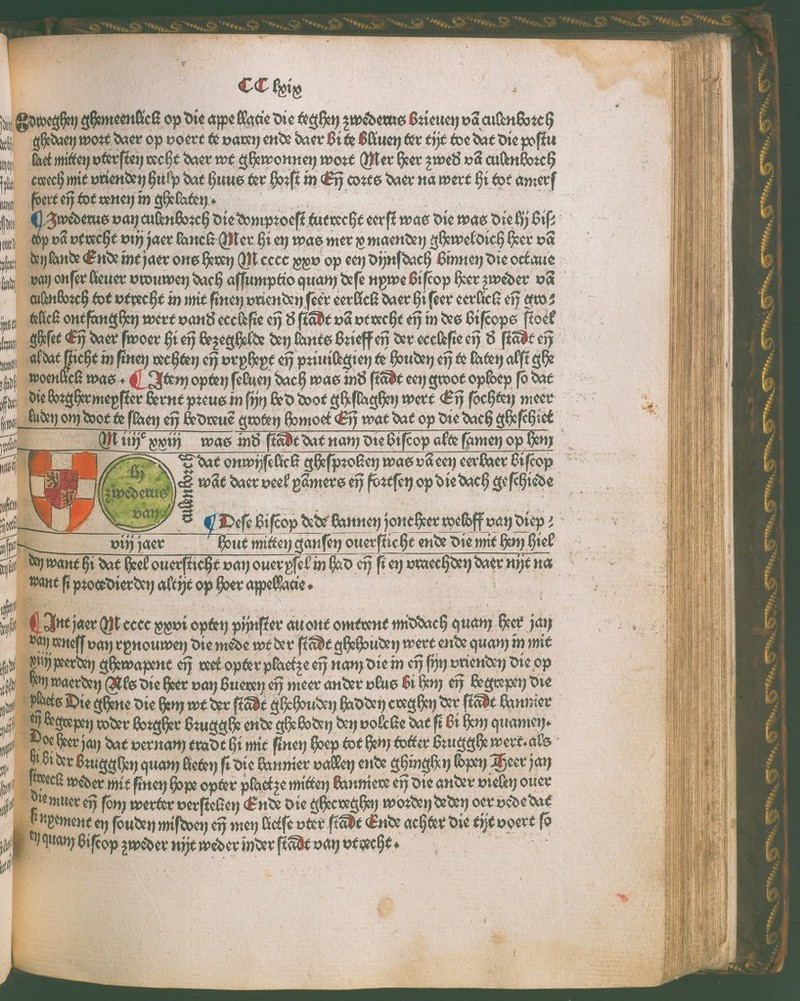 CC lxix
dweghen ghemeenlick op die appellacie die teghen zwederus brieuen vā culenborch
ghedaen wort daer op voert te varen ende daer bi te bliuen ter tijt toe dat die postu
laet mitten vtersten recht daer wt ghewonnen wort Mer heer zwed vā culenborch
creech mit vrienden hulp dat huus ter horst in Eñ corts daer na wert hi tot amerſ
foert eñ tot renen in ghelaten.
¶ Zwederus van culenborch die domproest tutrecht eerst was die was die lij bis⸗
cop vā vtrecht viij jaer lanck Mer hi en was mer x maenden gheweldich heer vā
den lande Ende int jaer ons heren M cccc xxv op een dijnsdach binnen die octaue
van onser lieuer vrouwen dach assumptio quam dese nywe biscop heer zweder vā
culenborch tot vtrecht in mit sinen vrienden seer eerlick daer hi seer eerlick eñ gro⸗
telick ontfanghen wert vand ecclesie eñ d stadt vā vtrecht eñ in des biscops stoel
gheset Eñ daer swoer hi eñ bezeghelde den lants brieff eñ der ecclesie eñ d stadt eñ
al dat sticht in sinen rechten eñ vryheyt eñ priuilegien te houden eñ te laten alst ghe
woenlick was. ¶ Item opten seluen dach was ind stadt een groot oploep so dat
die borghermeyster bernt preus in sijn bed doot gheslaghen wert Eñ sochten meer
luden om doot te slaen eñ bedreuē groten homoet Eñ wat dat op die dach gheschiet
M iiijc xxiij was ind stadt dat nam die biscop alte samen op hem
dat onwijselick ghesproken was vā een eerbaer biscop
wāt daer veel yāmers eñ fortsen op die dach geschiede
lij
zwederus
van
culenborch
¶ Dese biscop dede bannen joncheer roeloff van diep⸗
viij jaer hout mitten gansen ouersticht ende die mit hem hiel
den want hi dat heel ouersticht van oueryssel in had eñ si en vraechden daer nijt na
want si procedierden altijt op hoer appellacie.
¶ Int jaer M cccc xxvi opten pijnster auont omtrent middach quam heer jan
van reness van rynouwen die mede wt der stadt ghehouden wert ende quam in mit
xiiij peerden ghewapent eñ reet opter plaetze eñ nam die in eñ sijn vrienden die op
hem waerden Als die heer van bueren eñ meer ander vlus bi hem eñ begrepen die
plaets Die ghene die hem wt der stadt ghehouden hadden creghen der stadt bannier
eñ begrepen roder borgher brugghe ende gheboden den volcke dat si bi hem quamen.
Doe heer jan dat vernam tradt hi mit sinen hoep tot hem totter brugghe wert. als
hi bi der brugghen quam lieten si die bannier vallen ende ghinghen lopen Heer jan
streeck weder mit sinen hope opter plaetze mitten banniere eñ die ander vielen ouer
die muer eñ som werter versteken Ende die ghecreghen worden deden oer vede dat
si nyement en souden misdoen eñ men lietse vter stadt Ende achter die tijt voert so
en quam biscop zweder nijt weder in der stadt van vtrecht.